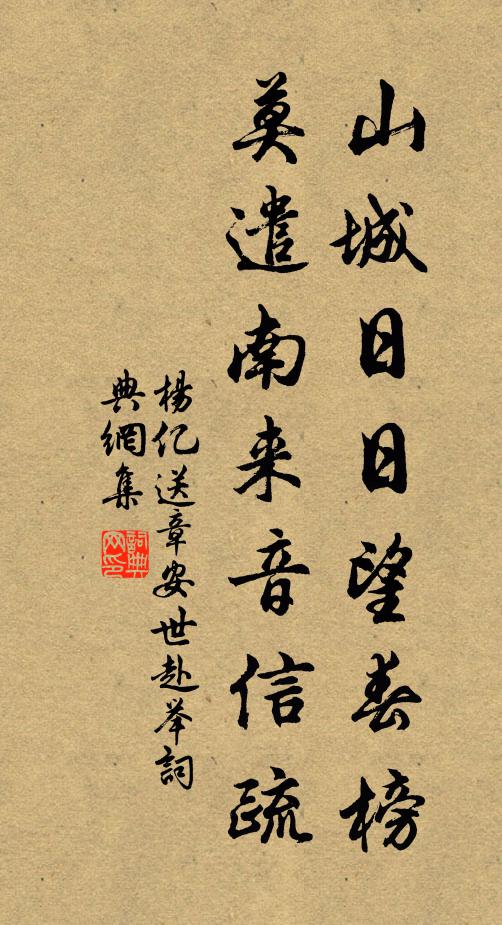 山城日日望春榜
莫遣南来音信疏
楊亿送章安世赴举詞
典網集
詞典网印